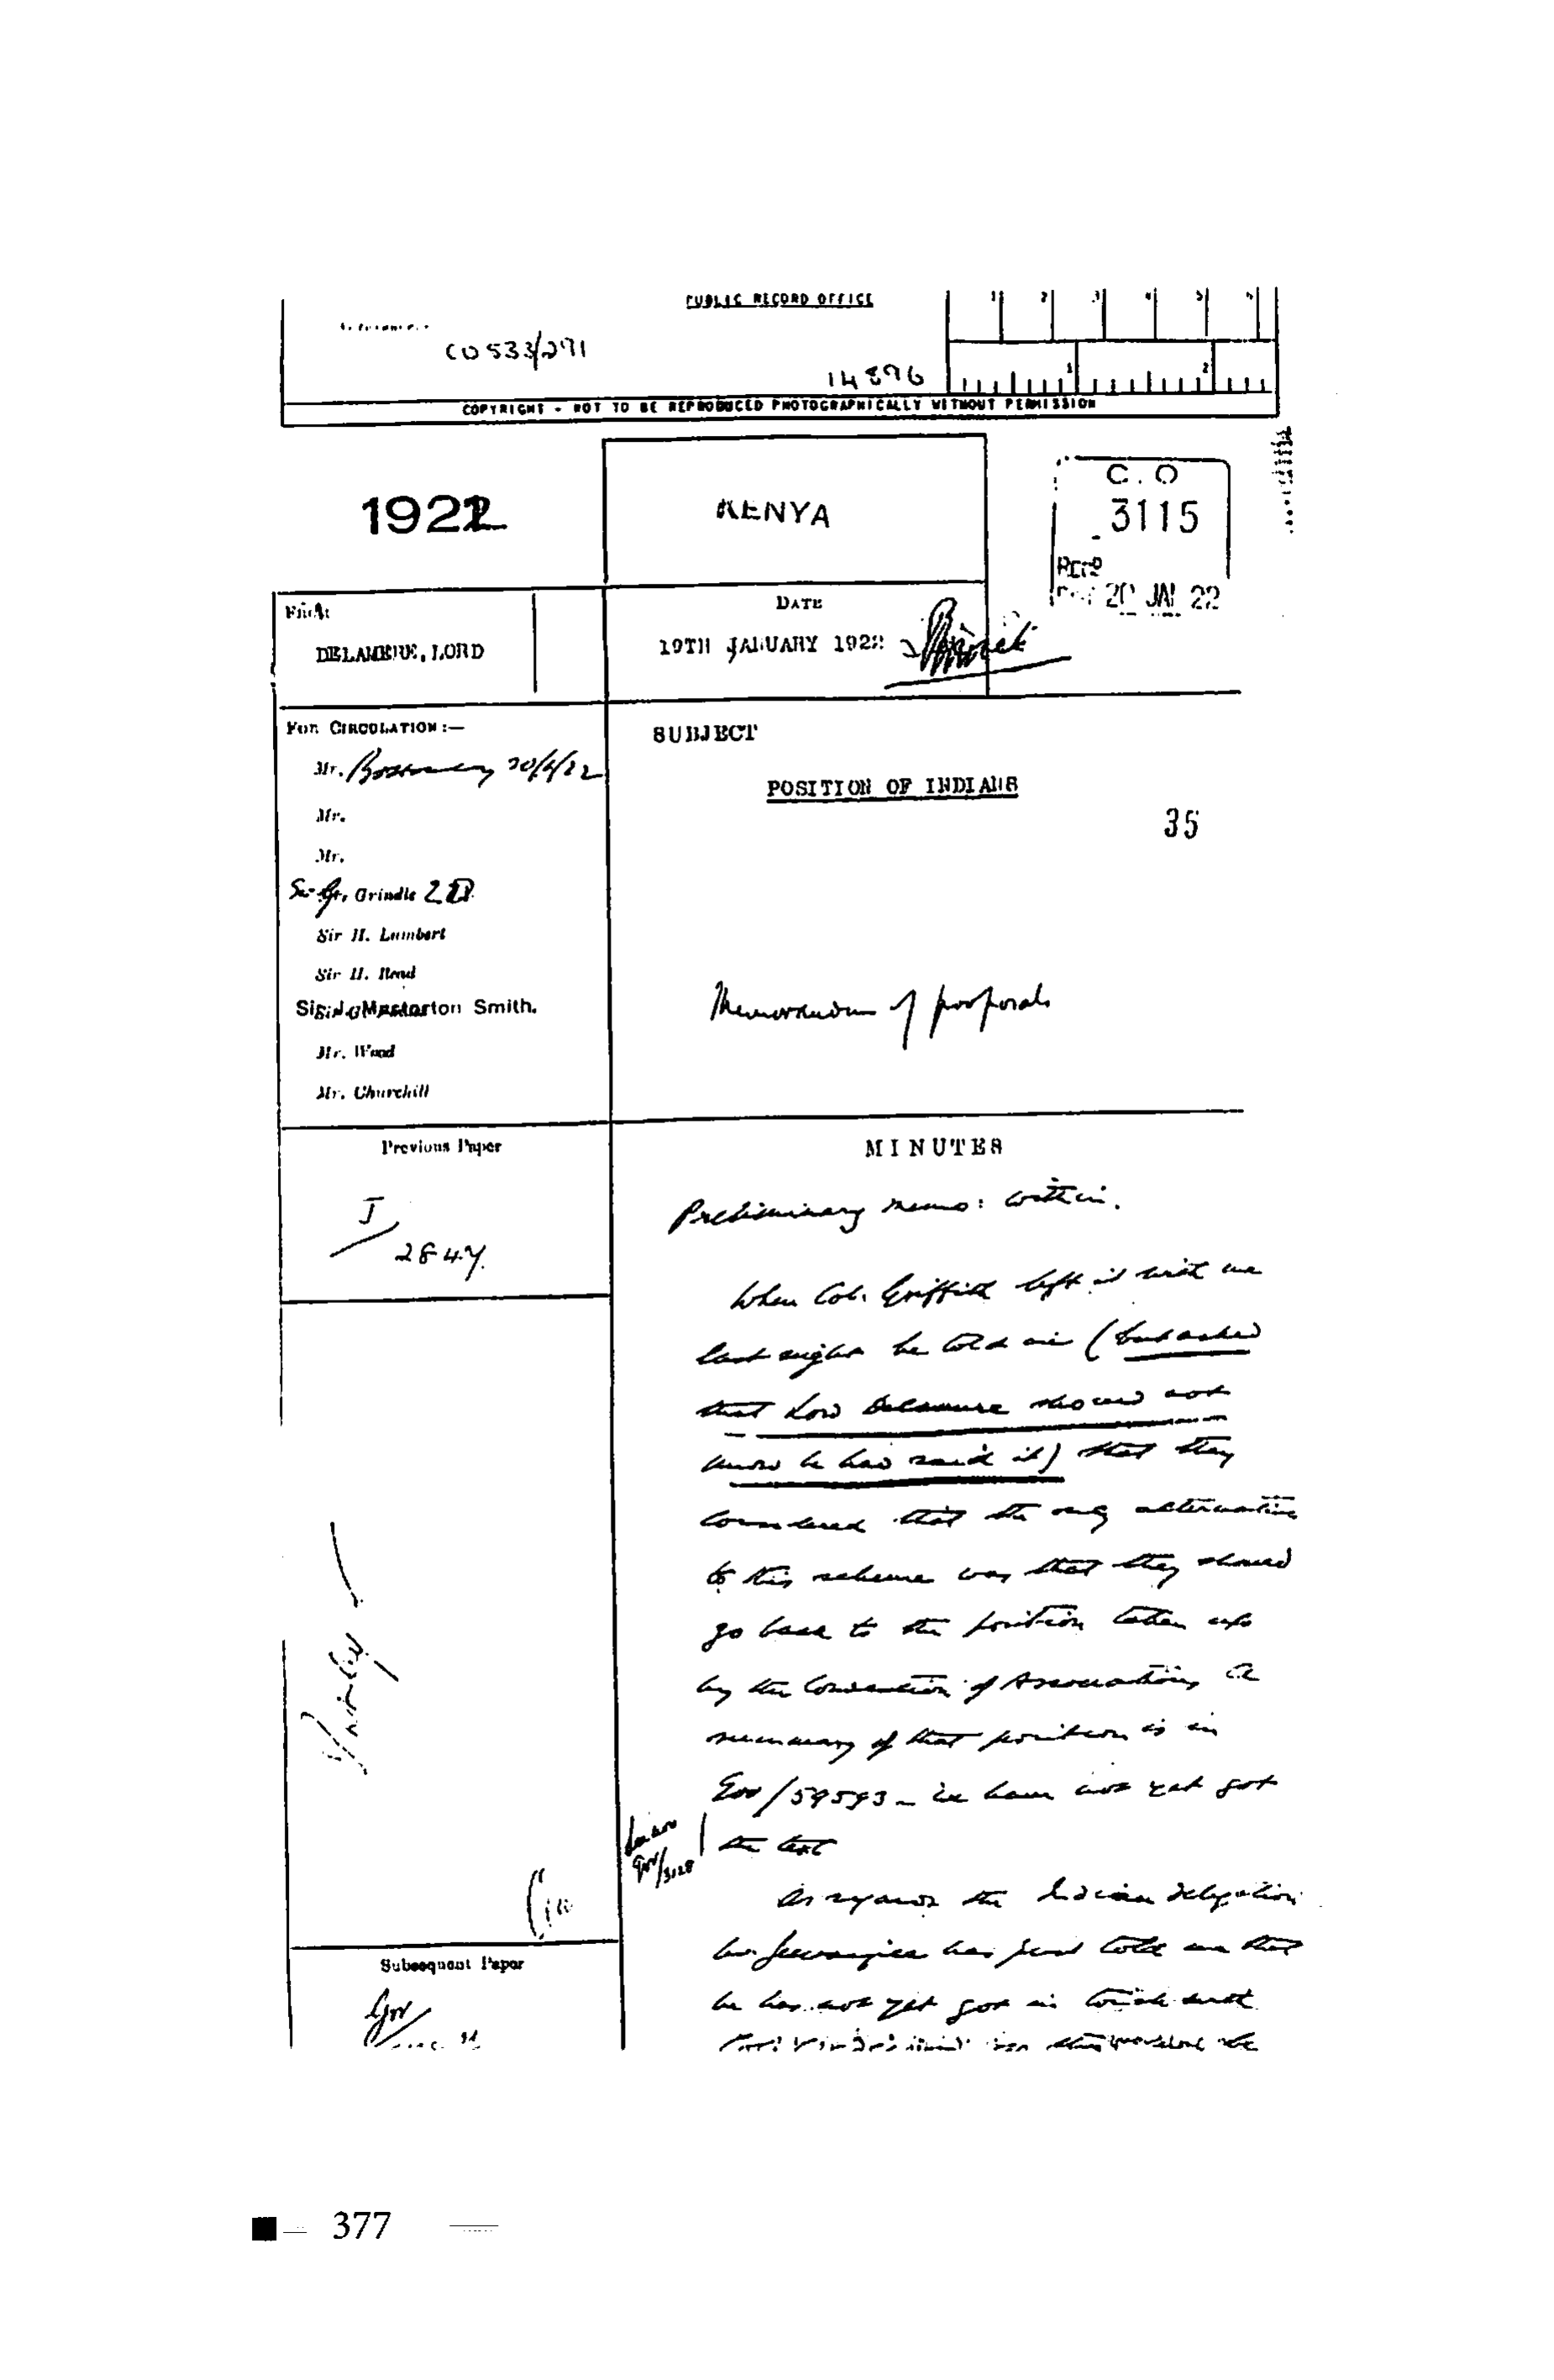 PUBLIC RECORD OFFICE
1 2 3 4 5
CO 533/291
14896
1 2
COPYRIGHT - NOT TO BE REPRODUCED PHOTOGRAPHICALLY WITHOUT PERMISSION
1922
KENYA
C.O
3115
REC?
20 JAN 22
FROM
DELAMERE, LORD
DATE
19TH JANUARY 1922
FOR CIRCULATION :—
Mr. 20/1/22
Mr.
Mr.
Sir G. Grindle
Sir H. Lambert
Sir H. Read
Sir J. Masterton Smith.
Mr. Wood
Mr. Churchill
SUBJECT
POSITION OF INDIANS
35
Memorandum of proposals
Previous Paper
I/2847
MINUTES
Preliminary memo: within.
When Col. Griffith left it with me
last night he told me (but asked
that Lord Delamere should not
know he had said it) that they
considered that the only alternative
to this scheme was that they should
go back to the position taken up
by the Convention of Associations. A
summary of that position is in
Gov/59593 — we have not yet got
the text
Gov/3128
As regards the Indian delegation
Mr. Jeevanjee has just told me that
he has not yet got in touch with
Subsequent Paper
Gov
377